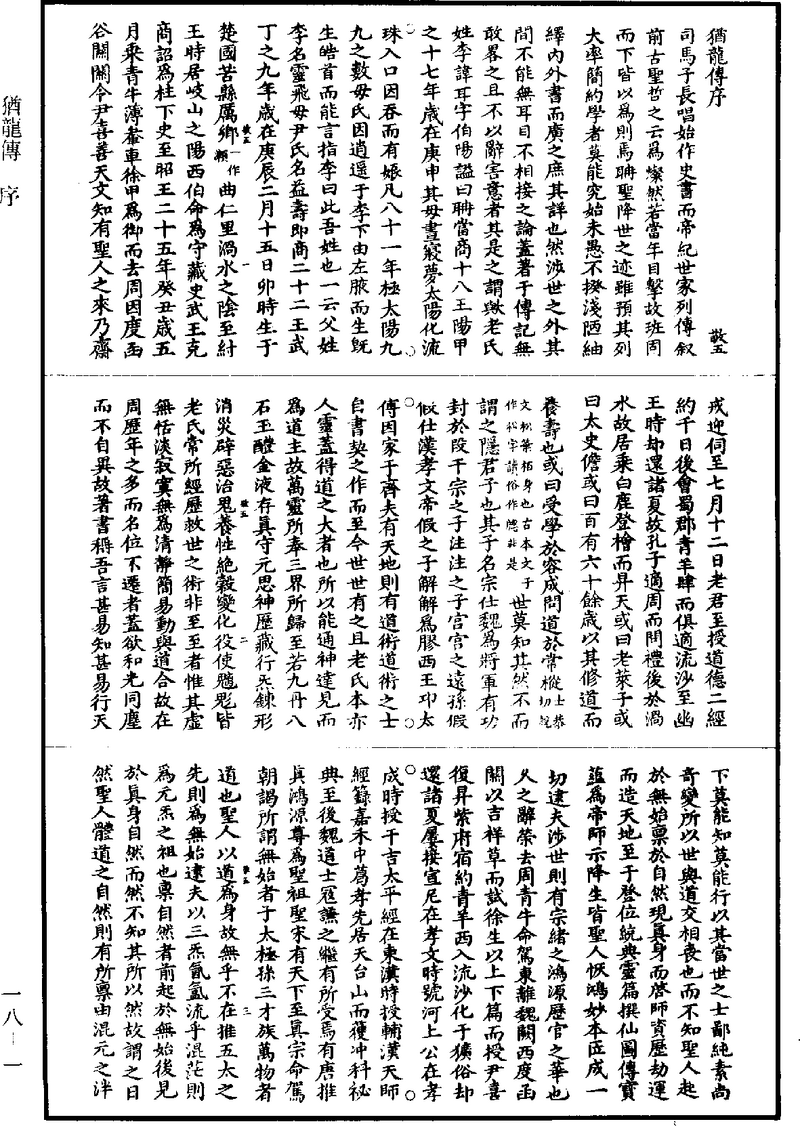 猶龍傳　序
一八－一
猶龍傳序
敬五
司馬子長唱始作史書而帝紀世家列傳叙
前古聖哲之云為燦然若當年目擊故班固
而下皆以為則焉聃聖降世之迹雖預其列
大率簡約學者莫能究始末愚不揆淺陋紬
繹內外書而廣之庶其詳也然涉世之外其
間不能無耳目不相接之論蓋著于傳記無
敢畧之且不以辭害意者其是之謂歟老氏
姓李諱耳字伯陽謚曰聃當商十八王陽甲
之十七年歲在庚申其母晝寢夢太陽化流
珠入口因吞而有娠凡八十一年極太陽九
九之數母氏因逍遥于李下由左腋而生旣
生皓首而能言指李曰此吾姓也一云父姓
李名靈飛母尹氏名益壽即商二十二王武
丁之九年歲在庚辰二月十五日卯時生于
楚國苦縣厲鄉一作賴曲仁里渦水之陰至紂
敬五　一
王時居岐山之陽西伯命為守藏史武王克
商詔為柱下史至昭王二十五年癸丑歲五
月乘青牛薄軬車徐甲為御而去周因度函
谷關關令尹喜善天文知有聖人之來乃齋
戒迎伺至七月十二日老君至授道德二經
約千日後會蜀郡青羊肆而俱適流沙至幽
王時却還諸夏故孔子適周而問禮後於渦
水故居乘白鹿登檜而昇天或曰老萊子或
曰太史儋或曰百有六十餘歲以其修道而
養壽也或曰受學於容成問道於常樅士恭切說
文松葉栢身也古本文子
作松字請俗作樅非是世莫知其然不而
謂之隱君子也其子名宗仕魏為將軍有功
封於段干宗之子注注之子宫宫之遠孫假
假仕漢孝文帝假之子解解為膠西王卭太
傅因家于齊夫有天地則有道術道術之士
自書契之作而至今世世有之且老氏本亦
人靈蓋得道之大者也所以能通神達見而
為道主故萬靈所奉三界所歸至若九丹八
石玉醴金液存眞守元思神歷藏行炁鍊形
消災辟惡治鬼養性絶穀變化役使魑魅皆
敬五　二
老氏常所經歷救世之術非至至者惟其虛
無恬淡寂寞無為清靜簡易動與道合故在
周歷年之多而名位不遷者蓋欲和光同塵
而不自異故著書稱吾言甚易知甚易行天
下莫能知莫能行以其當世之士鄙純素尚
奇變所以世與道交相喪也而不知聖人起
於無始禀於自然現眞身而啓師資歷劫運
而造天地至于登位統與靈篇撰仙圖傳寶
蘊為帝師示降生皆聖人恢鴻妙本匠成一
切逮夫涉世則有宗緒之鴻源歷官之華也
久之辭榮去周青牛命駕東離魏闕西度函
關以吉祥草而試徐生以上下篇而授尹喜
復昇紫府宿約青羊西入流沙化于獷俗却
還諸夏屢接宣尼在孝文時號河上公在孝
成時授干吉太平經在東漢時授輔漢天師
經籙嘉禾中葛孝先居天台山而獲冲科祕
典至後魏道士寇謙之繼有所受焉有唐推
眞鴻源尊為聖祖聖宋有天下至眞宗命駕
朝謁所謂無始者子太極孫三才族萬物者
道也聖人以道為身故無乎不在推五太之
敬五　三
先則為無始逮夫以三炁氤氳流乎混茫則
為元炁之祖也禀自然者前起於無始後見
於眞身自然而然不知其所以然故謂之曰
然聖人體道之自然則有所禀由混元之泮